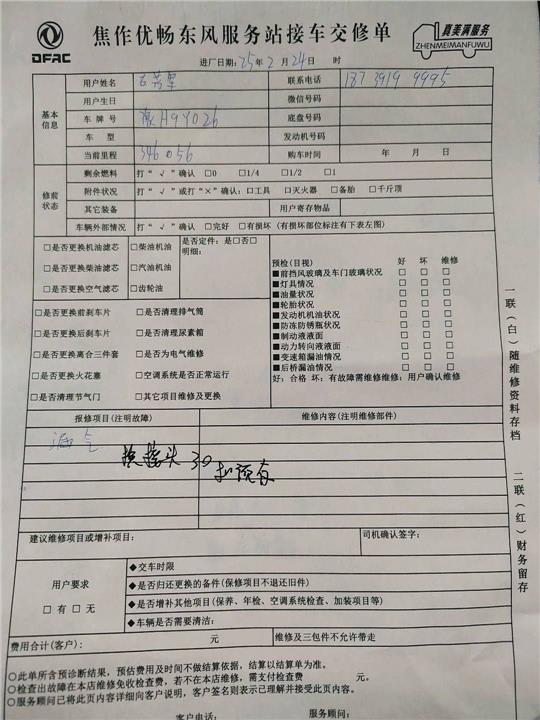 DFAC
焦作优畅东风服务站接车交修单
真美满服务
ZHENMEIMANFUWU
进厂日期:25年2月24日 时
基本信息
用户姓名
联系电话 187 3919 9995
用户生日 微信号码
车牌号 H9Y026 底盘号码
车 型 发动机号码
当前里程 346056 购车时间 年 月 日
修前状态
剩余燃料 打“√”确认 □0 □1/4 □1/2 □1
附件状况 打“√”或打“×”确认:□工具 □灭火器 □备胎 □千斤顶
其它装备 用户寄存物品
车辆外部情况 打“√”确认 □完好 □有损坏(有损坏部位标注有下表左图)
□是否更换机油滤芯 □柴油机油 是否定件:是□否□
明细:
□是否更换柴油滤芯 □汽油机油
□是否更换空气滤芯 □齿轮油
预检(目视) 好 坏 维修
■前挡风玻璃及车门玻璃状况 □ □ □
■灯具情况 □ □ □
■油量状况 □ □ □
■轮胎状况 □ □ □
■发动机机油状况 □ □ □
■防冻防锈瓶状况 □ □ □
■制动液液面 □ □ □
■动力转向液液面 □ □ □
■变速箱漏油情况 □ □ □
■后桥漏油情况 □ □ □
好:合格 坏:有故障需维修维修:用户确认维修
□是否更换前刹车片 □是否清理排气筒
□是否更换后刹车片 □是否清理尿素箱
□是否更换离合三件套 □是否为电气维修
□是否更换火花塞 □空调系统是否正常运行
□是否清理节气门 □其它项目维修及更换
报修项目(注明故障) 维修内容(注明维修部件)
漏气
换接头 30 扣预存
建议维修项目或增补项目: 司机确认签字:
用户要求
□有□无
◆交车时限
◆是否归还更换的备件(保修项目不退还旧件)
◆是否增补其他项目(保养、年检、空调系统检查、加装项目等)
◆车辆是否需要清洁:
费用合计(客户): 元 维修及三包件不允许带走
○此单所含预诊断结果,预估费用及时间不做结算依据,结算以结算单为准。
○检查出故障在本店维修免收检查费,若不在本店维修,需支付检查费 元。
○服务顾问已将此页内容详细向客户说明,客户签名则表示已理解并接受此页内容。
客户电话: 服务顾问:
一联(白)随维修资料存档
二联(红)财务留存